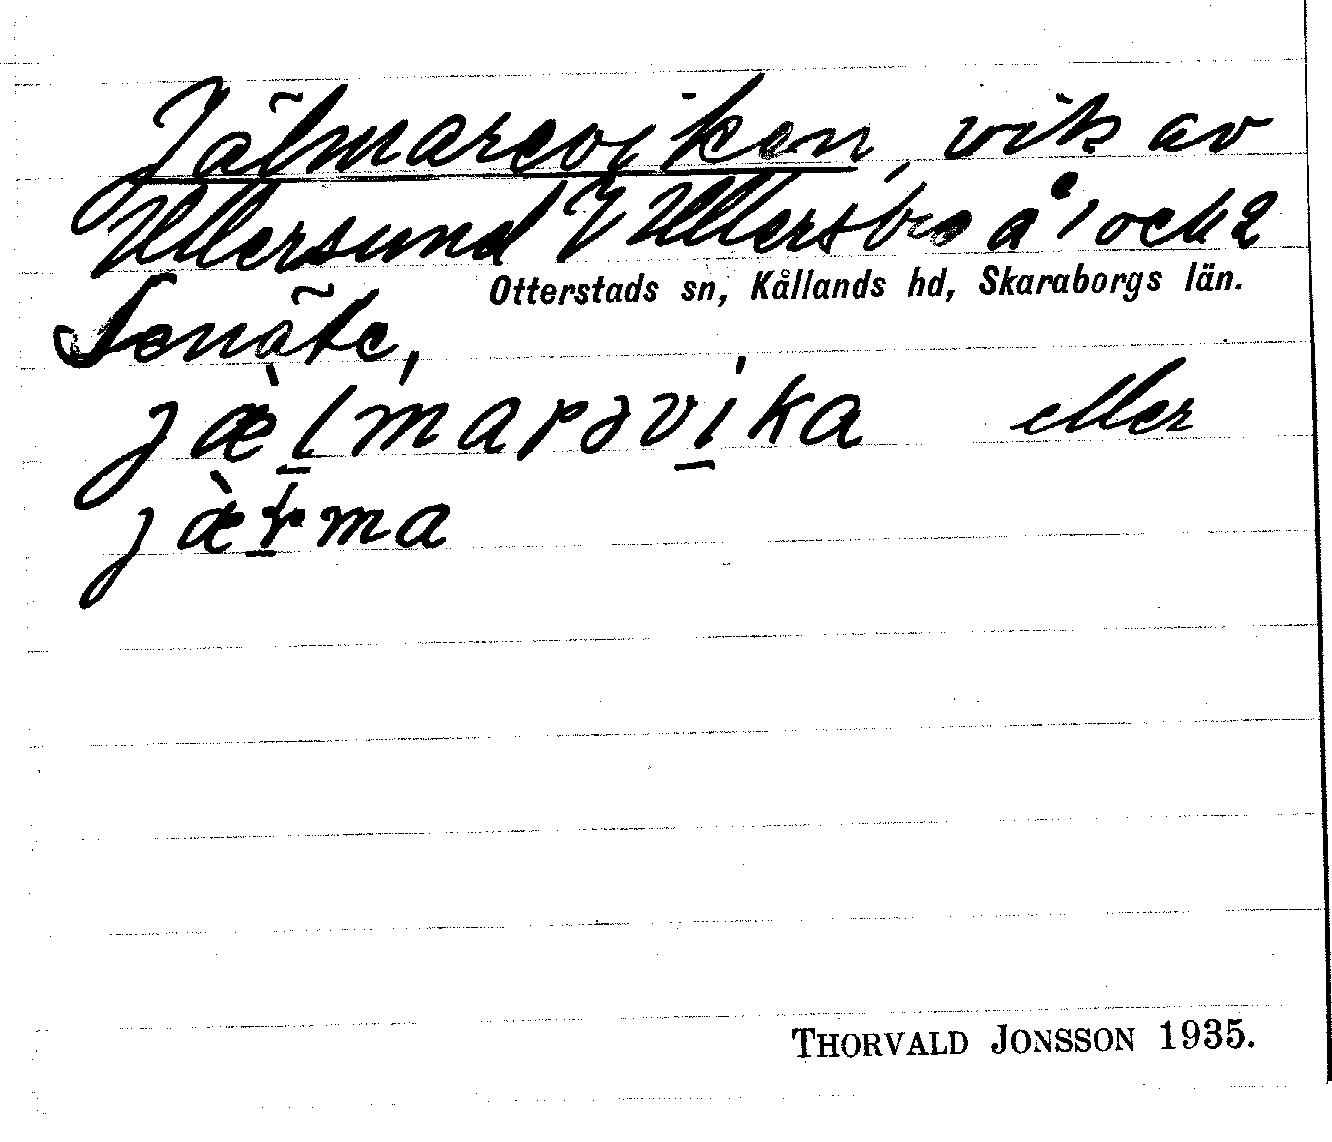 Jälmareviken, vik av
Ullersund V Ullersbro å 1 och 2
Otterstads sn, Kållands hd, Skaraborgs län.
Senäte,
jæ̀lmarəvika eller
jæ̀rma
THORVALD JONSSON 1935.